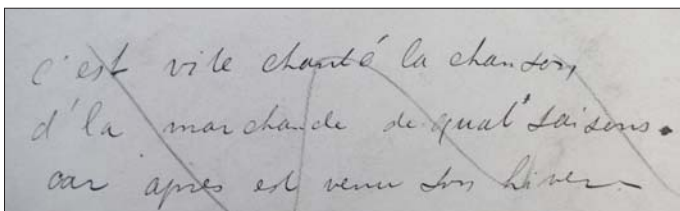 c'est vite chanté la chanson,
d'la marchande de quat'saisons.
car après est venu son hiver.